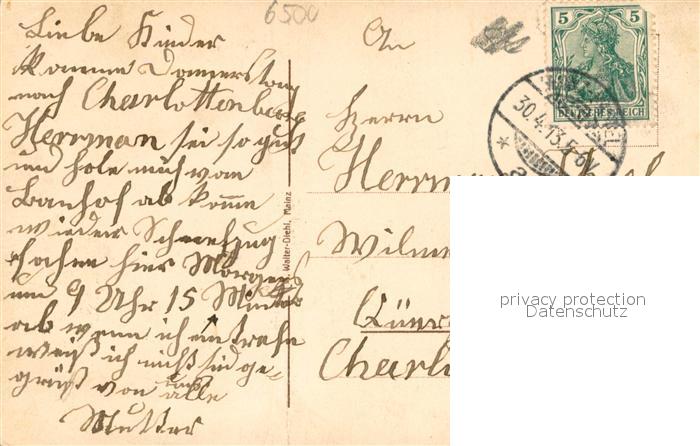 6500
Liebe Kinder
komme Donnerstag
nach Charlottenburg
Herrman sei so gut
und hole mich vom
Banhof ab komme
wieder Schnelzug
fahre hier Morgens
um 9 Uhr 15 Minut
ab wenn ich eintrefe
weiß ich nicht sind ge-
grüßt von uns alle
Mutter
Walter-Diehl, Mainz
An
Herrn
Herrman
Wilmer
Charl
5 5
DEUTSCHES REICH
30.4.13.5-6N
privacy protection
Datenschutz